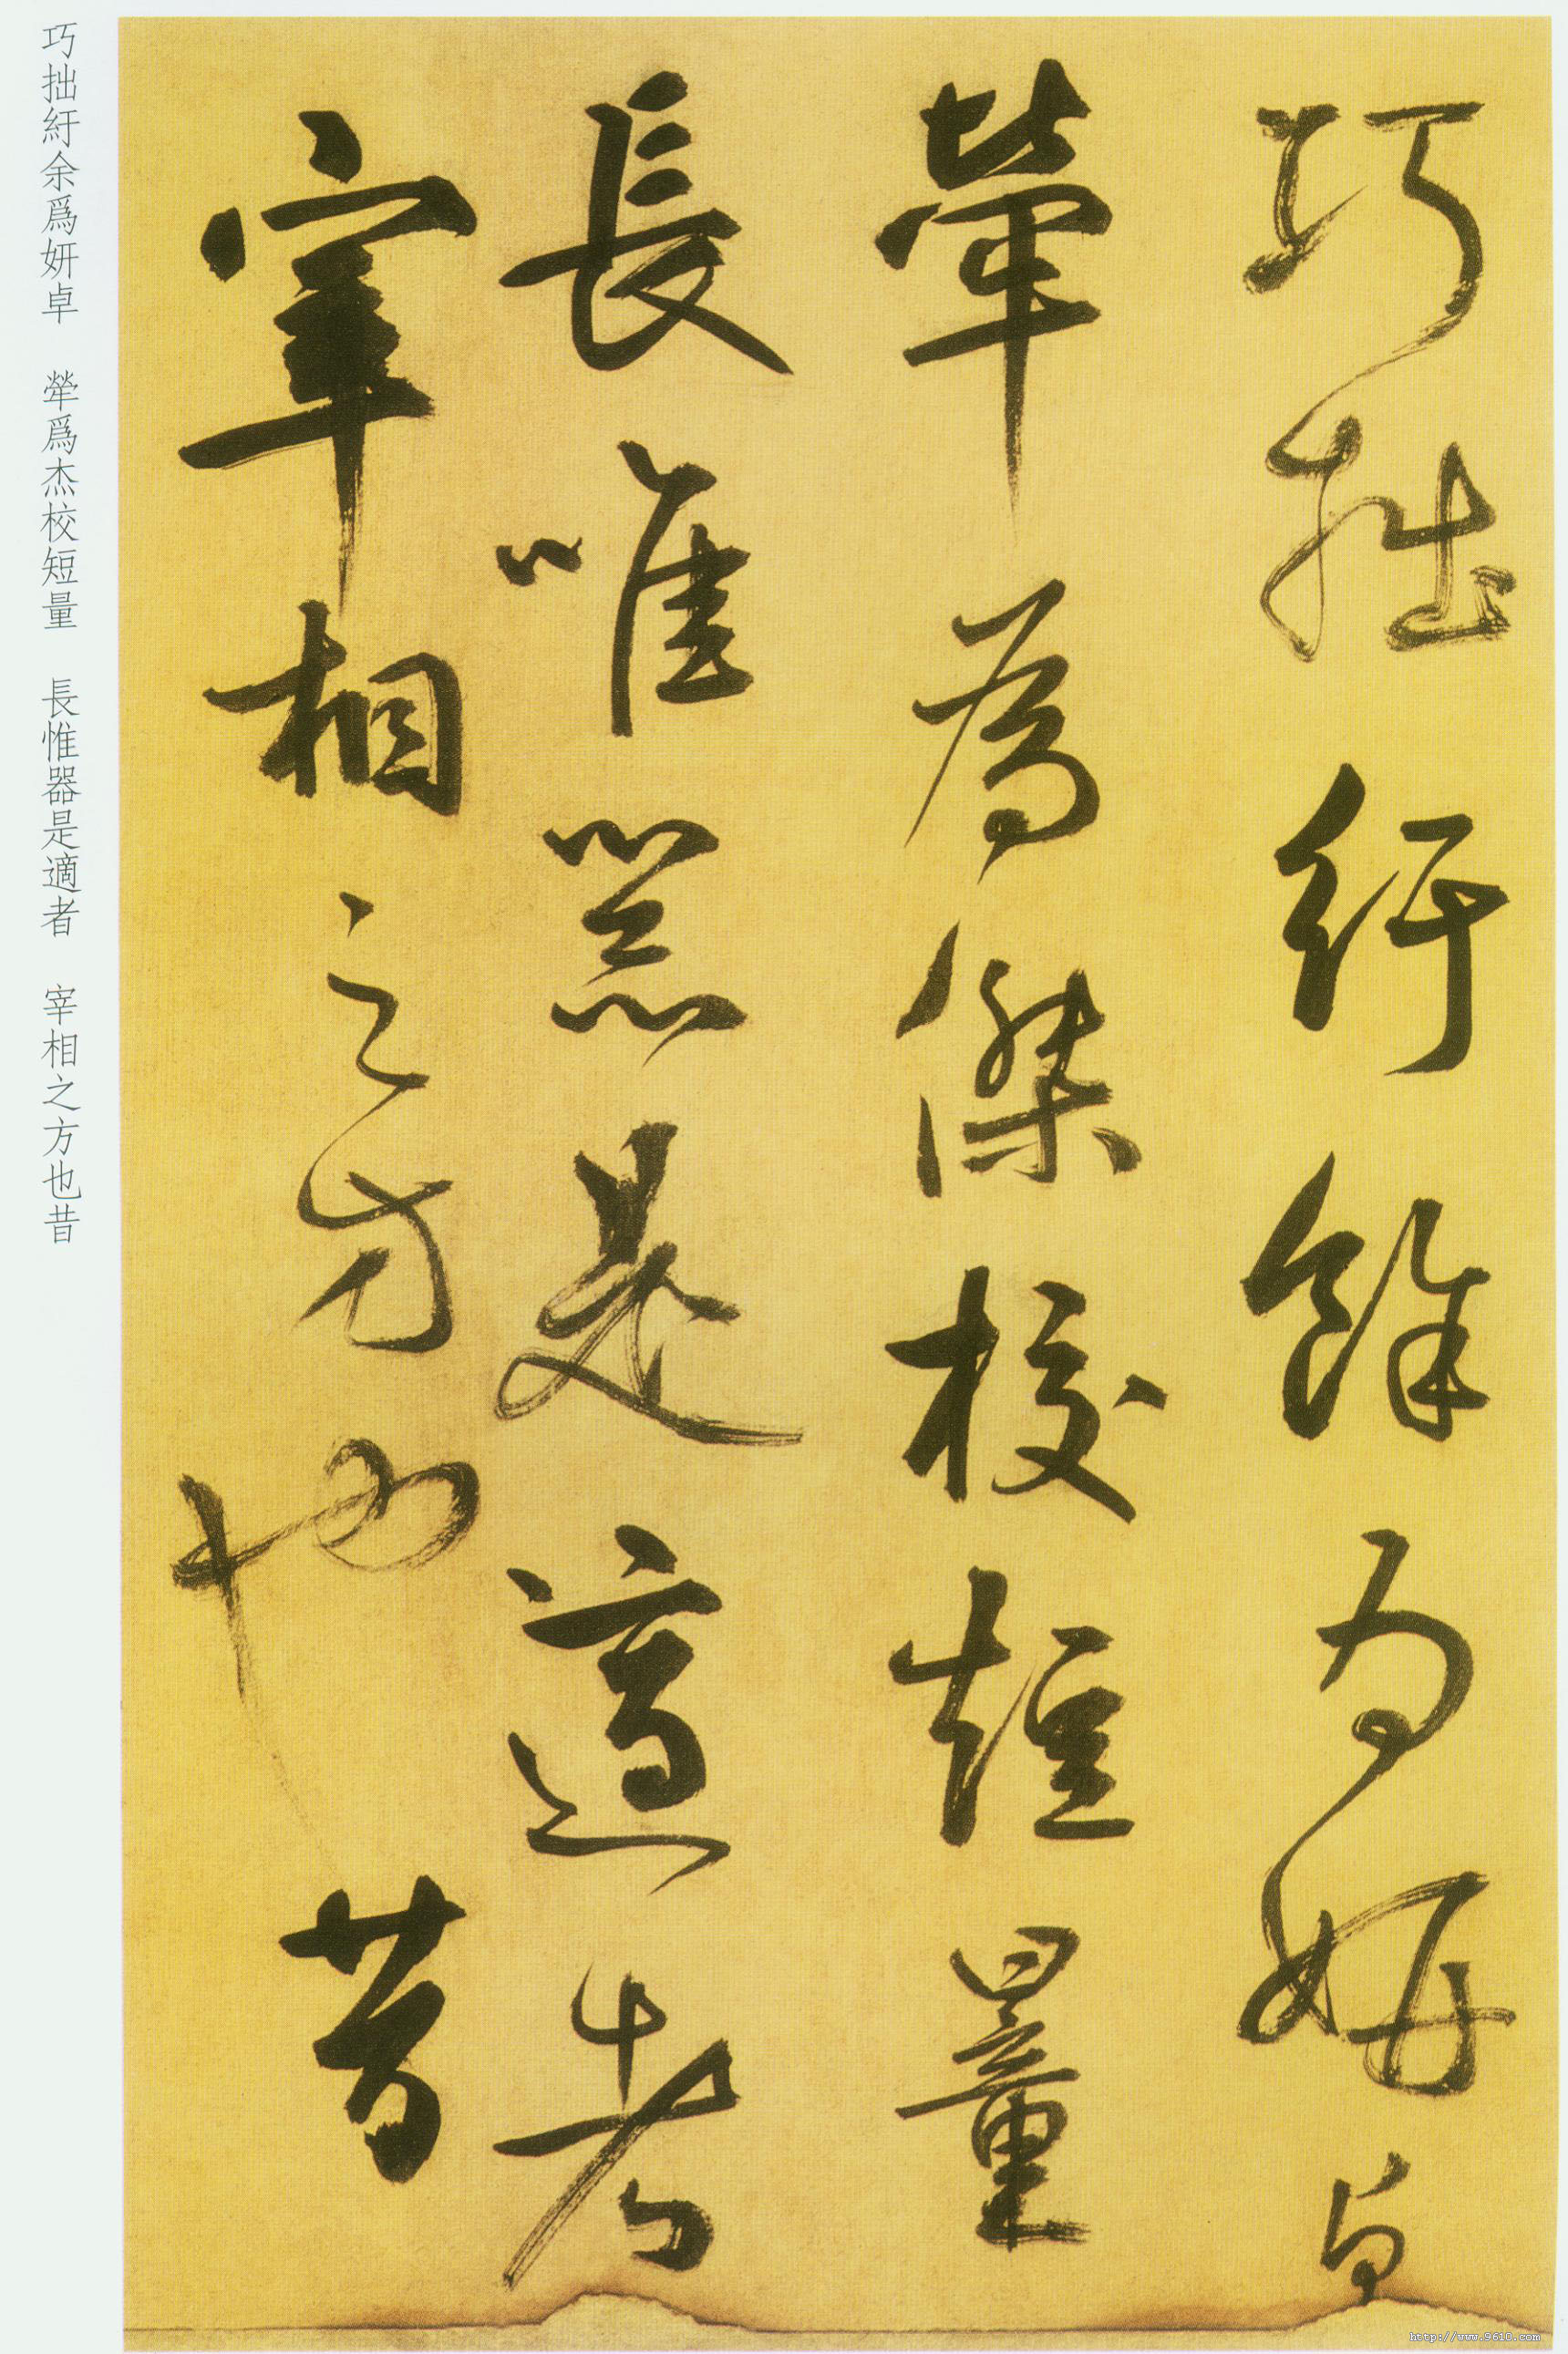 巧拙紆餘為妍卓
犖為傑校短量
長唯器是適者
宰相之方也昔
巧拙紆余爲妍卓 犖爲杰校短量 長惟器是適者 宰相之方也昔
http://www.9610.com